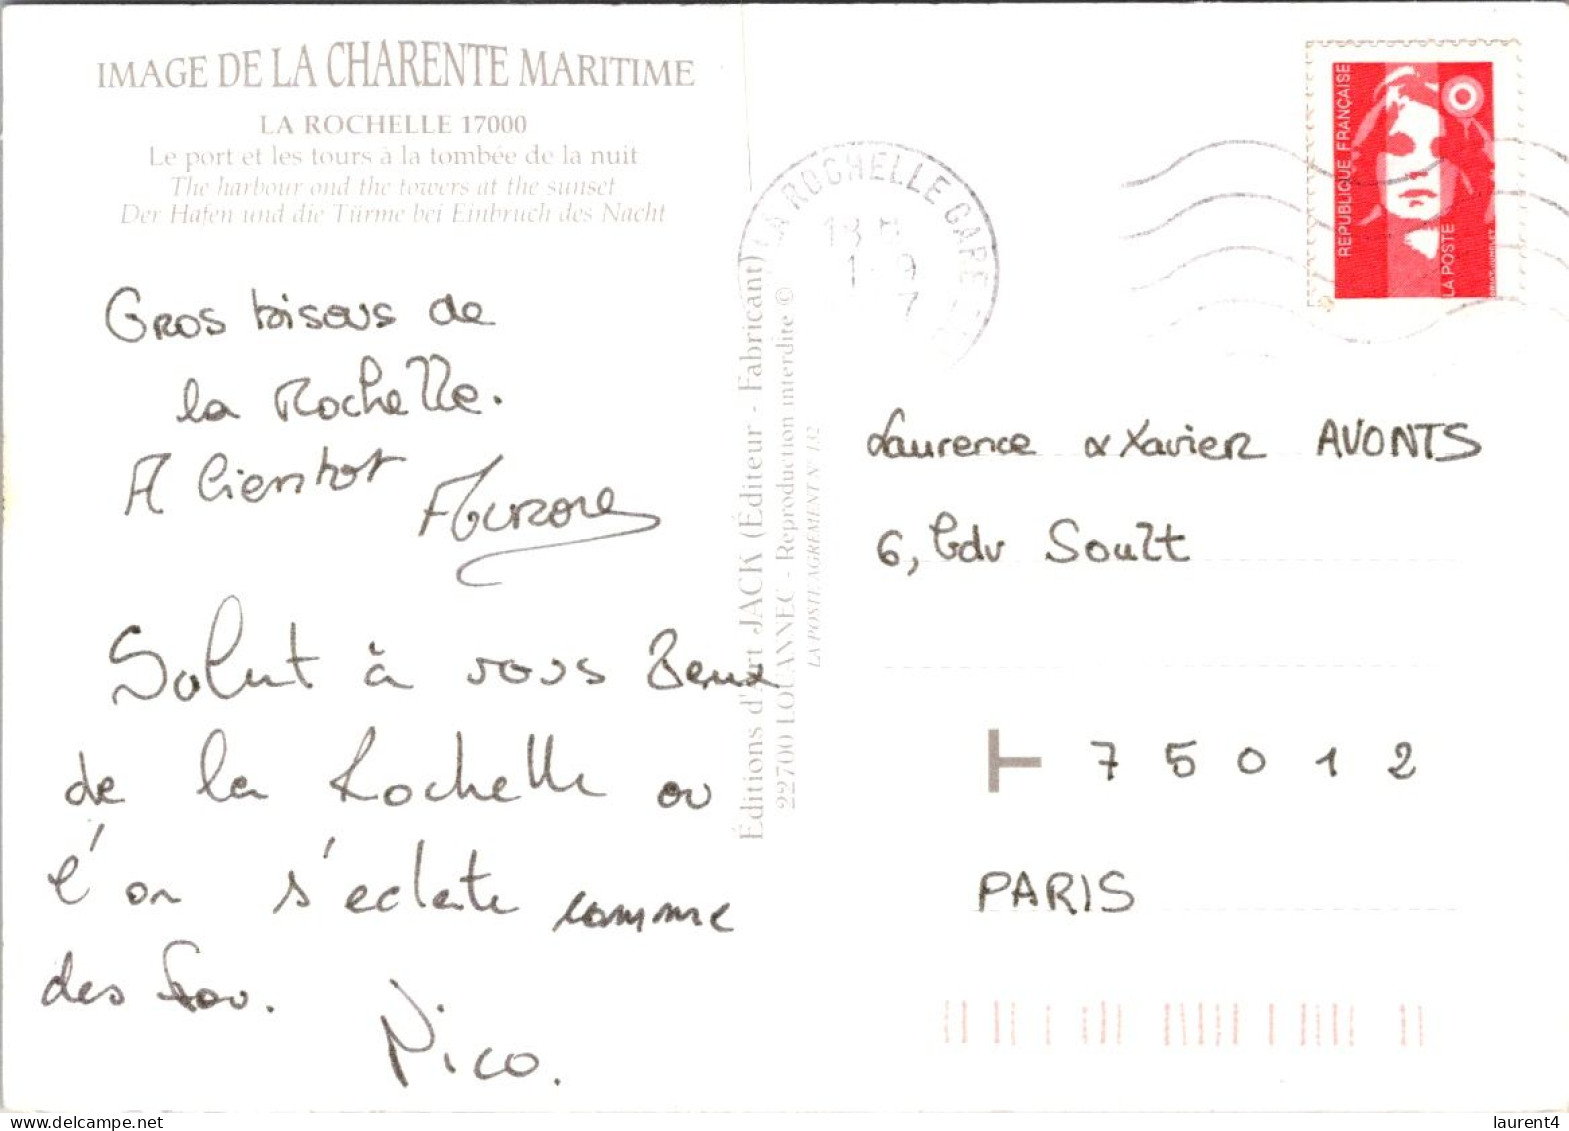 IMAGE DE LA CHARENTE MARITIME
LA ROCHELLE 17000
Le port et les tours à la tombée de la nuit
The harbour and the towers at the sunset
Der Hafen und die Türme bei Einbruch des Nacht
Gros bisous de
la Rochelle.
A bientot
Aurore
Salut à vous Deux
de la Rochelle ou
l'on s'eclate comme
des fou.
Nico.
Éditions d'Art JACK (Éditeur - Fabricant)
22700 LOUANNEC - Reproduction interdite ©
LA POSTE AGREMENT N° 132
LA ROCHELLE GARE
18 H
1 - 9
7
REPUBLIQUE FRANÇAISE
LA POSTE
Laurence & Xavier AVONTS
6, bdv Soult
75012
PARIS
delcampe.net
laurent4